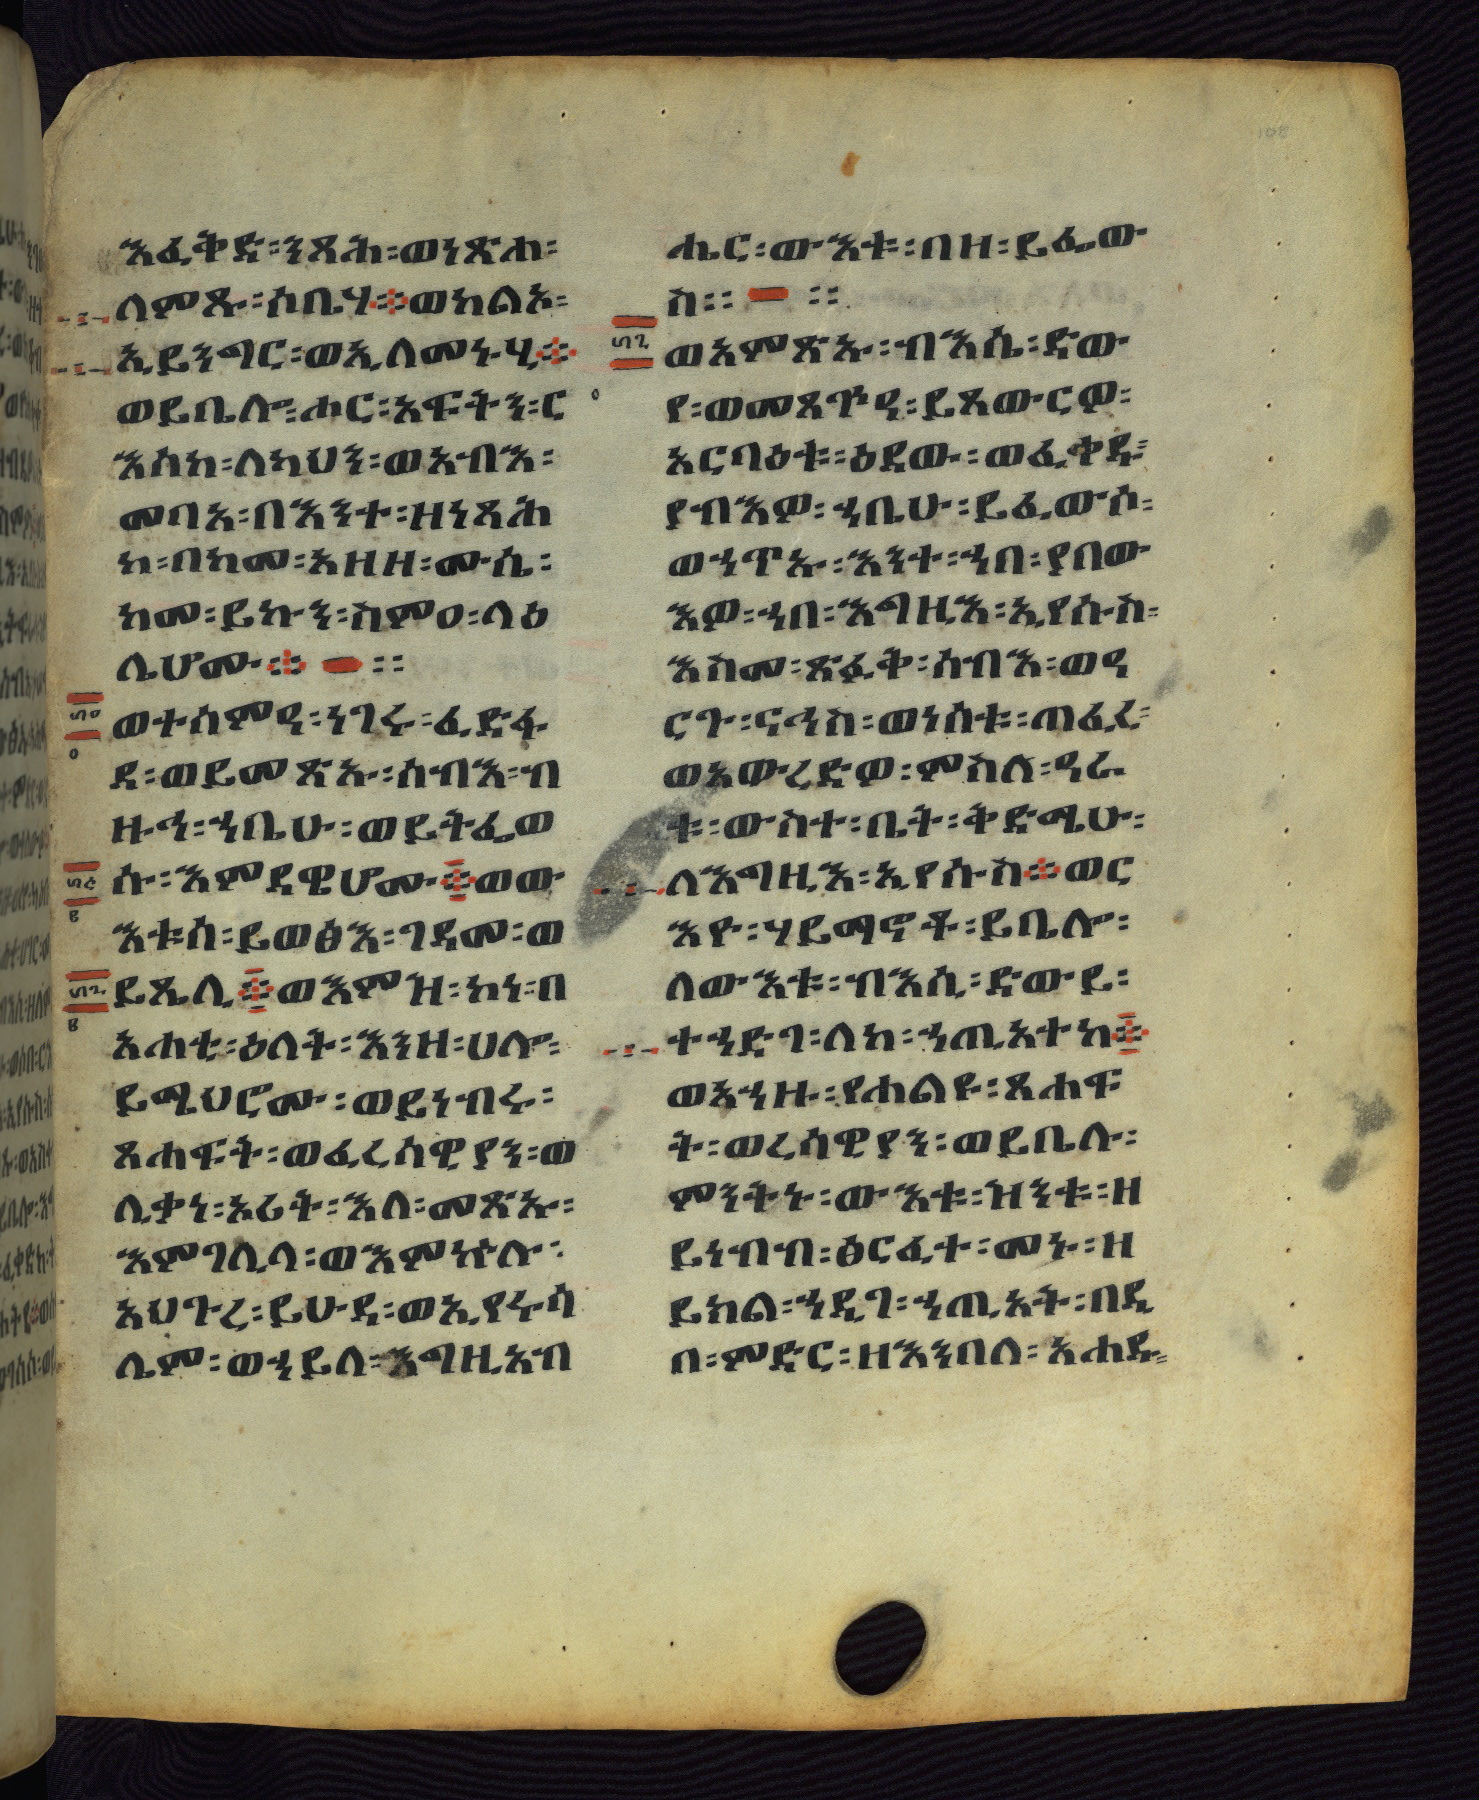 እፈቅድ፡ንጻሕ፡ወነጽሐ፡
ለምጹ፡ሶቤሃ፨ወከልኦ፡
ኢይንግር፡ወኢለመኑሂ፨
ወይቤሎ፡ሑር፡አፍትን፡ር
እስከ፡ለካህን፡ወአብእ፡
መባአ፡በእንተ፡ዘነጻሕ
ከ፡በከመ፡አዘዘ፡ሙሴ፡
ከመ፡ይኩን፡ስምዐ፡ላዕ
ሌሆሙ፨ ፡፡
ወተሰምዓ፡ነገሩ፡ፈድፋ
ደ፡ወይመጽኡ፡ሰብእ፡ብ
ዙኃ፡ኀቤሁ፡ወይትፌወ
ሱ፡እምደዌሆሙ፨ወው
እቱሰ፡ይወፅእ፡ገዳመ፡ወ
ይጼሊ፨ወእምዝ፡ኮነ፡በ
አሐቲ፡ዕለት፡እንዘ፡ሀሎ፡
ይሜህሮሙ፡ወይነብሩ፡
ጸሐፍት፡ወፈሪሳዊያን፡ወ
ሊቃነ፡ኦሪት፡እለ፡መጽኡ፡
እምገሊላ፡ወእምኵሉ፡
አህጉረ፡ይሁዳ፡ወኢየሩሳ
ሌም፡ወኀይለ፡እግዚአብ
ሔር፡ውእቱ፡በዘ፡ይፌው
ስ፡፡ ፡፡
ወአምጽኡ፡ብእሴ፡ድው
የ፡ወመጻጕዓ፡ይጸውርዎ፡
አርባዕቱ፡ዕደው፡ወፈቀዱ፡
ያብእዎ፡ኀቤሁ፡ይፈውሶ፡
ወኀጥኡ፡እንተ፡ኀበ፡ያበው
እዎ፡ኀበ፡እግዚእ፡ኢየሱስ፡
እስመ፡ጽፉቅ፡ሰብእ፡ወዓ
ርጉ፡ናኅስ፡ወነሰቱ፡ጠፈረ፡
ወአውረድዎ፡ምስለ፡ዓራ
ቱ፡ውስተ፡ቤት፡ቅድሜሁ፡
ለእግዚእ፡ኢየሱስ፨ወር
እዮ፡ሃይማኖቶ፡ይቤሎ፡
ለውእቱ፡ብእሲ፡ድውይ፡
ተኀድገ፡ለከ፡ኀጢአተከ፨
ወአኀዙ፡የሐልዩ፡ጸሐፍ
ት፡ወረሳዊያን፡ወይቤሉ፡
ምንትኑ፡ውእቱ፡ዝንቱ፡ዘ
ይነብብ፡ፅርፈተ፡መኑ፡ዘ
ይክል፡ኀዲገ፡ኀጢአት፡በዲ
በ፡ምድር፡ዘእንበለ፡አሐዱ፡